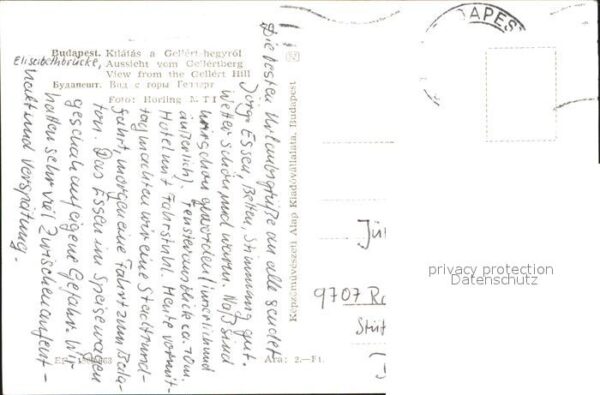 Budapest. Kilátás a Gellért-hegyről
Aussicht vom Gellértberg
View from the Gellért Hill
Будапешт. Вид с горы Геллерт
Foto: Horling MTI
Elisabethbrücke,
Die besten Urlaubsgrüße an alle sendet
Jörg. Essen, Betten, Stimmung gut.
Wetter schön und warm. Naß sind
wir schon geworden (innerlich und
äußerlich). Fensterausblick ca. 70m.
Hotel mit Fahrstuhl. Heute vormit-
tag machten wir eine Stadtrund-
fahrt, morgen eine Fahrt zum Bala-
ton. Das Essen im Speisewagen
geschah auf eigene Gefahr. Wir
hatten sehr viel Zwischenaufent-
halt und Verspätung.
Képzőművészeti Alap Kiadóvállalata, Budapest
Ára: 2.—Ft
DAPEST
Jü
9707 R
privacy protection
Datenschutz